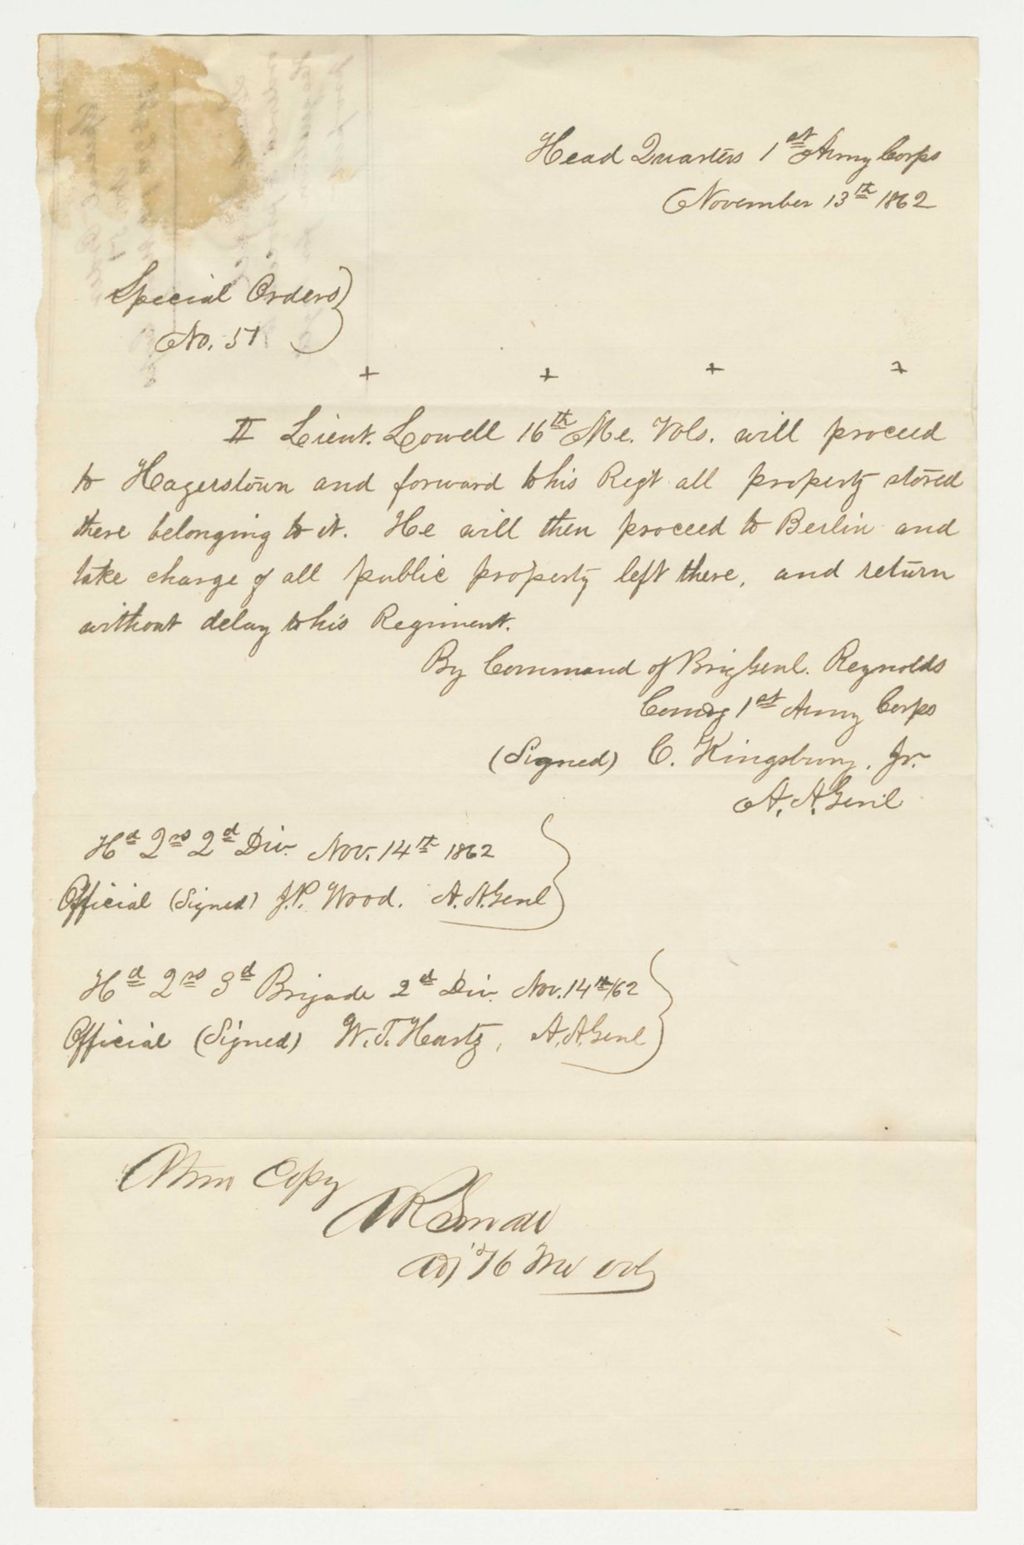 Head Quarters 1st Army Corps
November 13th 1862
Special Orders
No. 51
+ + + +
II Lieut. Lowell 16th Me. Vols. will proceed
to Hagerstown and forward to his Regt all property stored
there belonging to it. He will then proceed to Berlin and
take charge of all public property left there, and return
without delay to his Regiment.
By Command of Brig Genl. Reynolds
Comdg 1st Army Corps
(Signed) C. Kingsbury, Jr.
A. A. Genl
Hd Qrs 2d Div. Nov. 14th 1862
Official (Signed) J.P. Wood. A. A. Genl
Hd Qrs 3d Brigade 2d Div. Nov. 14th/62
Official (Signed) W. T. Hartz, A. A. Genl
A true Copy
A R Small
Adj 16 Me Vols